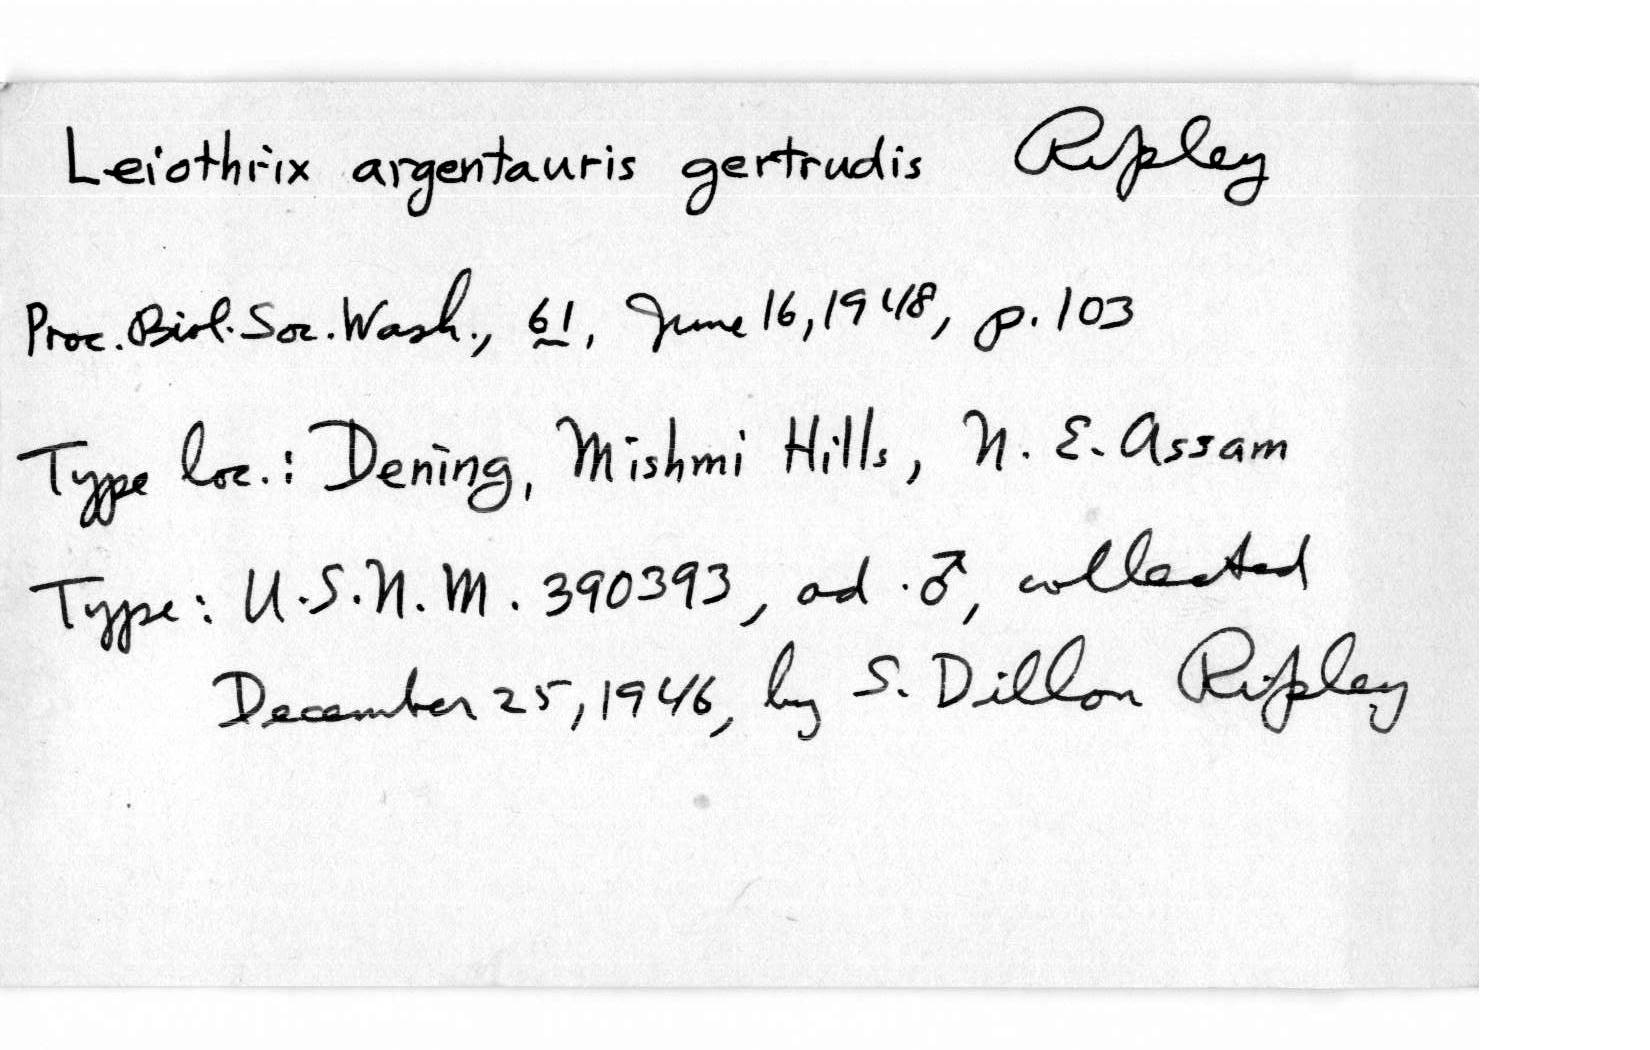 Leiothrix argentauris gertrudis Ripley
Proc. Biol. Soc. Wash., 61, June 16, 1948, p. 103
Type loc.: Dening, Mishmi Hills, N. E. Assam
Type: U.S.N.M. 390393, ad. ♂, collected
December 25, 1946, by S. Dillon Ripley